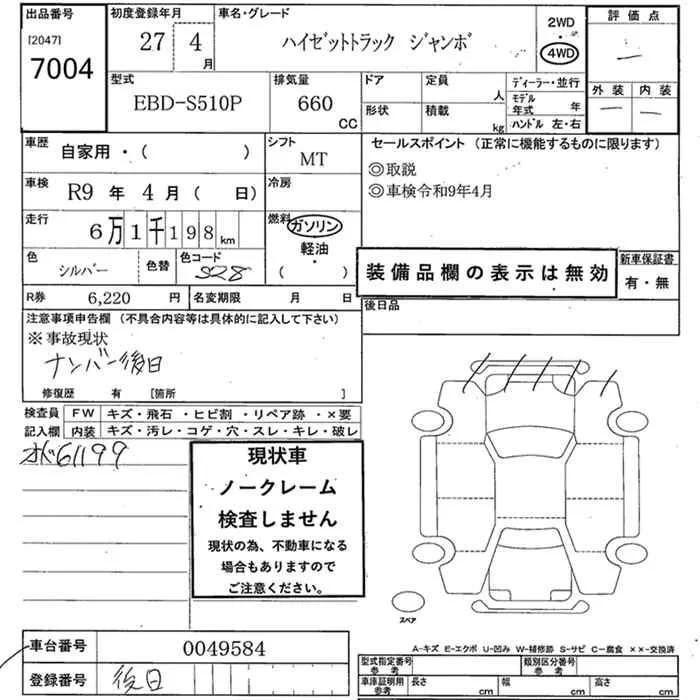 出品番号
[2047]
7004
初度登録年月
27 4
月
車名・グレード
ハイゼットトラック ジャンボ
2WD
・
4WD
評価点
外装 内装
型式
EBD-S510P
排気量
660
CC
ドア
定員
人
形状
積載
kg
ディーラー・並行
モデル
年式 年
ハンドル 左・右
車歴
自家用・( )
シフト
MT
セールスポイント (正常に機能するものに限ります)
◎取説
◎車検令和9年4月
車検
R9 年 4 月 ( 日)
冷房
走行
6万1千198 km
燃料
ガソリン
軽油・
( )
色
シルバー
色替
色コード
S28
装備品欄の表示は無効
新車保証書
有・無
R券
6,220 円
名変期限 月 日
後日品
注意事項申告欄 (不具合内容等は具体的に記入して下さい)
※事故現状
ナンバー後日
修復歴 有 [箇所 ]
検査員
記入欄
FW キズ・飛石・ヒビ割・リペア跡・×要
内装 キズ・汚レ・コゲ・穴・スレ・キレ・破レ
61199
現状車
ノークレーム
検査しません
現状の為、不動車になる
場合もありますので
ご注意ください。
スペア
車台番号
0049584
登録番号
後日
A-キズ E-エクボ U-凹み W-補修跡 S-サビ C-腐食 ××-交換済
型式指定番号
参考
類別区分番号
参考
車庫証明用
参考
長さ cm
幅 cm
高さ cm